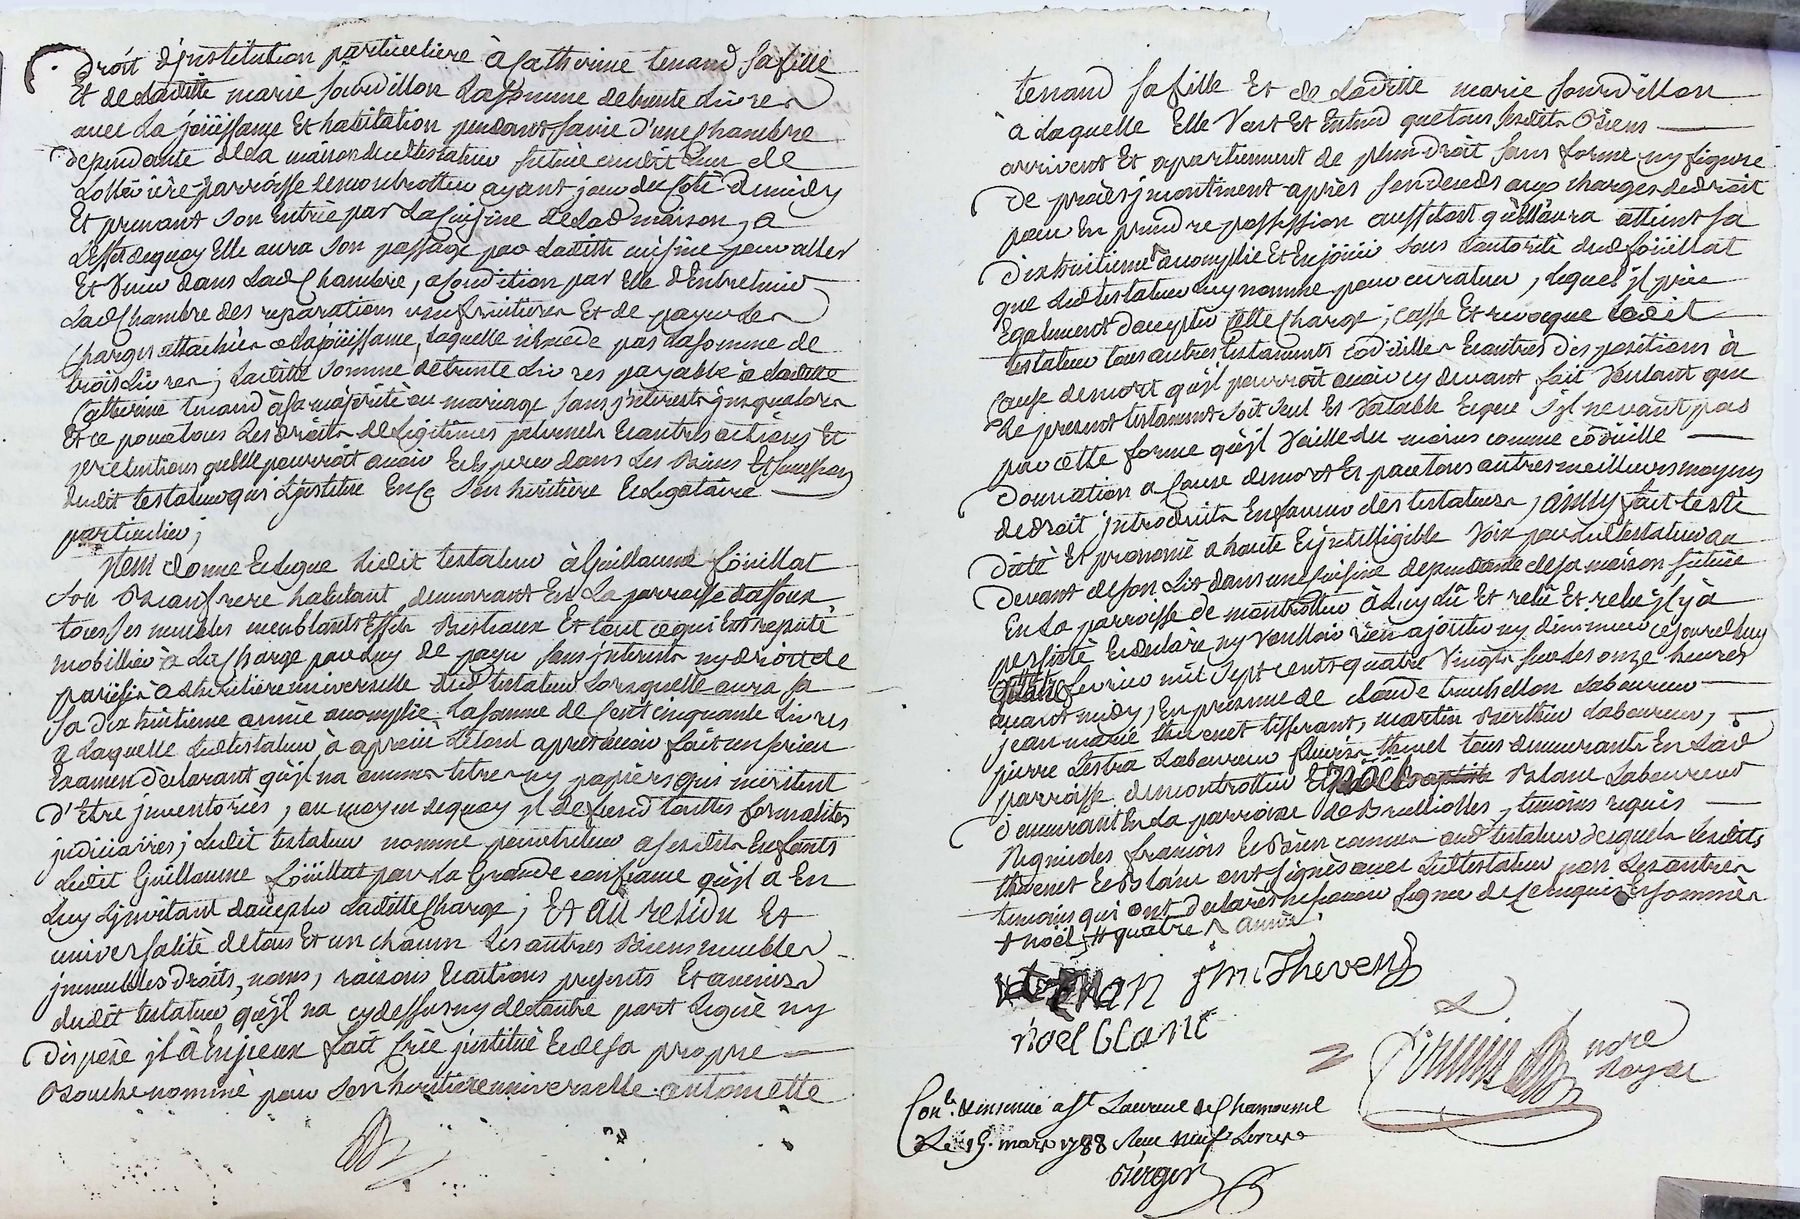 droit d'institution particuliere à Catherine tenand sa fille
Et de Laditte marie sourdillon La somme de trente Livres
avec La joüissance Et habitation pendant sa vie d'une Chambre
dependante de la maison dudit testateur scituée audit Lieu de
parroisse de montrottier ayant jour du Coté de midy
Et prenant son Entrée par La Cuisine de Lad maison, a
L'effet dequoy Elle aura son passage par Laditte cuisine pour aller
Et Venir dans Lad Chambre, a Condition par Elle d'Entretenir
Lad Chambre des reparations usufruitieres Et de payer Les
Charges attachées a La joüissance, Laquelle n'excede pas La somme de
trois Livres; Laditte somme de trente Livres payable à Laditte
Catherine tenand à sa majorité ou mariage sans jnterests jusqualors
Et ce pour tous Les droits de Legitimes paternels Et autres actions Et
pretentions quelle pourroit avoir Et Esperer dans Les Biens Et succession
dudit testateur qui L'jnstitue En ce son heritiere Et Legataire
particuliere;
jtem donne Et Legue Ledit testateur à Guillaume foüillat
son Beaufrere habitant demeurant En La parroisse
tous ses meubles meublants Effets Bestiaux Et tout ce qui Est reputé
mobillier à La Charge par Luy de payer sans jnterests ny droit de
à Lheritiere universelle dud testateur Lorsquelle aura sa
sa dix huitieme année accomplie La somme de Cent cinquante Livres
a Laquelle Led testateur à aprecié Le tout apres avoir fait un serieux
Examen declarant qu'jl na aucuns titres ny papiers qui meritent
d'Etre jnventoriés, au moyen dequoy jl deffend touttes formalités
judiciaires; Ledit testateur nomme pour tuteur a sesdits Enfants
Ledit Guillaume foüillat par La Grande confiance qu'jl a En
Luy L'jnvitant daccepter Laditte Charge; Et au residu Et
universalité de tous Et un chacun Les autres Biens meubles
jmmeubles droits, noms, raisons Et actions presents Et avenirs
dudit testateur qu'jl na cydessus ny de Lautre part Legué ny
disposé jl à fait Créé jnstitué Et de sa propre
Bouche nommé pour son heritiere universelle antoinette
tenand sa fille Et de Laditte marie sourdillon
à Laquelle Elle Veut Et Entend que tous sesdits Biens
arrivent Et apartiennent de plein droit sans forme ny figure
de procès jncontinent après son deceds aux charges de droit
pour En prendre possession aussitost qu'Elle aura atteint sa
dixhuitieme accomplie Et En joüir sous Lautorité dud foüillat
que Led testateur Luy nomme pour curateur, Lequel jl prie
Egalement daccepter cette Charge; casse Et revoque Ledit
testateur tous autres testaments codicilles Et autres dispositions à
Cause de mort qu'jl pourroit avoir cy devant fait Voulant que
Le present testament soit seul Et Valable Et que s'jl ne vaut pas
par cette forme qu'jl Vaille du moins comme codicille
donnation a Cause de mort Et par tous autres meilleurs moyens
de droit jntroduits En faveur des testateurs, ainsy fait testé
dicté Et prononcé a haute Et jntelligible Voix par Led testateur au
devant de son Lit dans une Cuisine dependante de sa maison scituée
En La parroisse de montrottier à Luy Lû Et relû Et relû jl y à
persisté Et declaré ny Vouloir rien ajouter ny diminuer cejourdhuy
fevrier mil sept cents quatre Vingts sur Les onze heures
avant midy, En presence de claude Laboureur
jean marie thevenet tisserant, martin Berthier Laboureur,
pierre Lestra Laboureur thevenet tous demeurants En Lad
parroisse de montrottier Et noël Blanc Laboureur
demeurant En La parroisse de Brullioles, temoins requis
francois Et Bien connus aud testateur desquels Lesdits
thevenet Et Blanc ont signés avec Led testateur non Les autres
temoins qui ont declarés ne scavoir signer de ce Enquis Et sommés
+ noël # quatre ∧ année
tenan jm Thevenet
noel blanc
nore
Royal
Conlé. Et insinué a St Laurent de Chamousset
Le 15. mars 1788 Recu neuf Livres